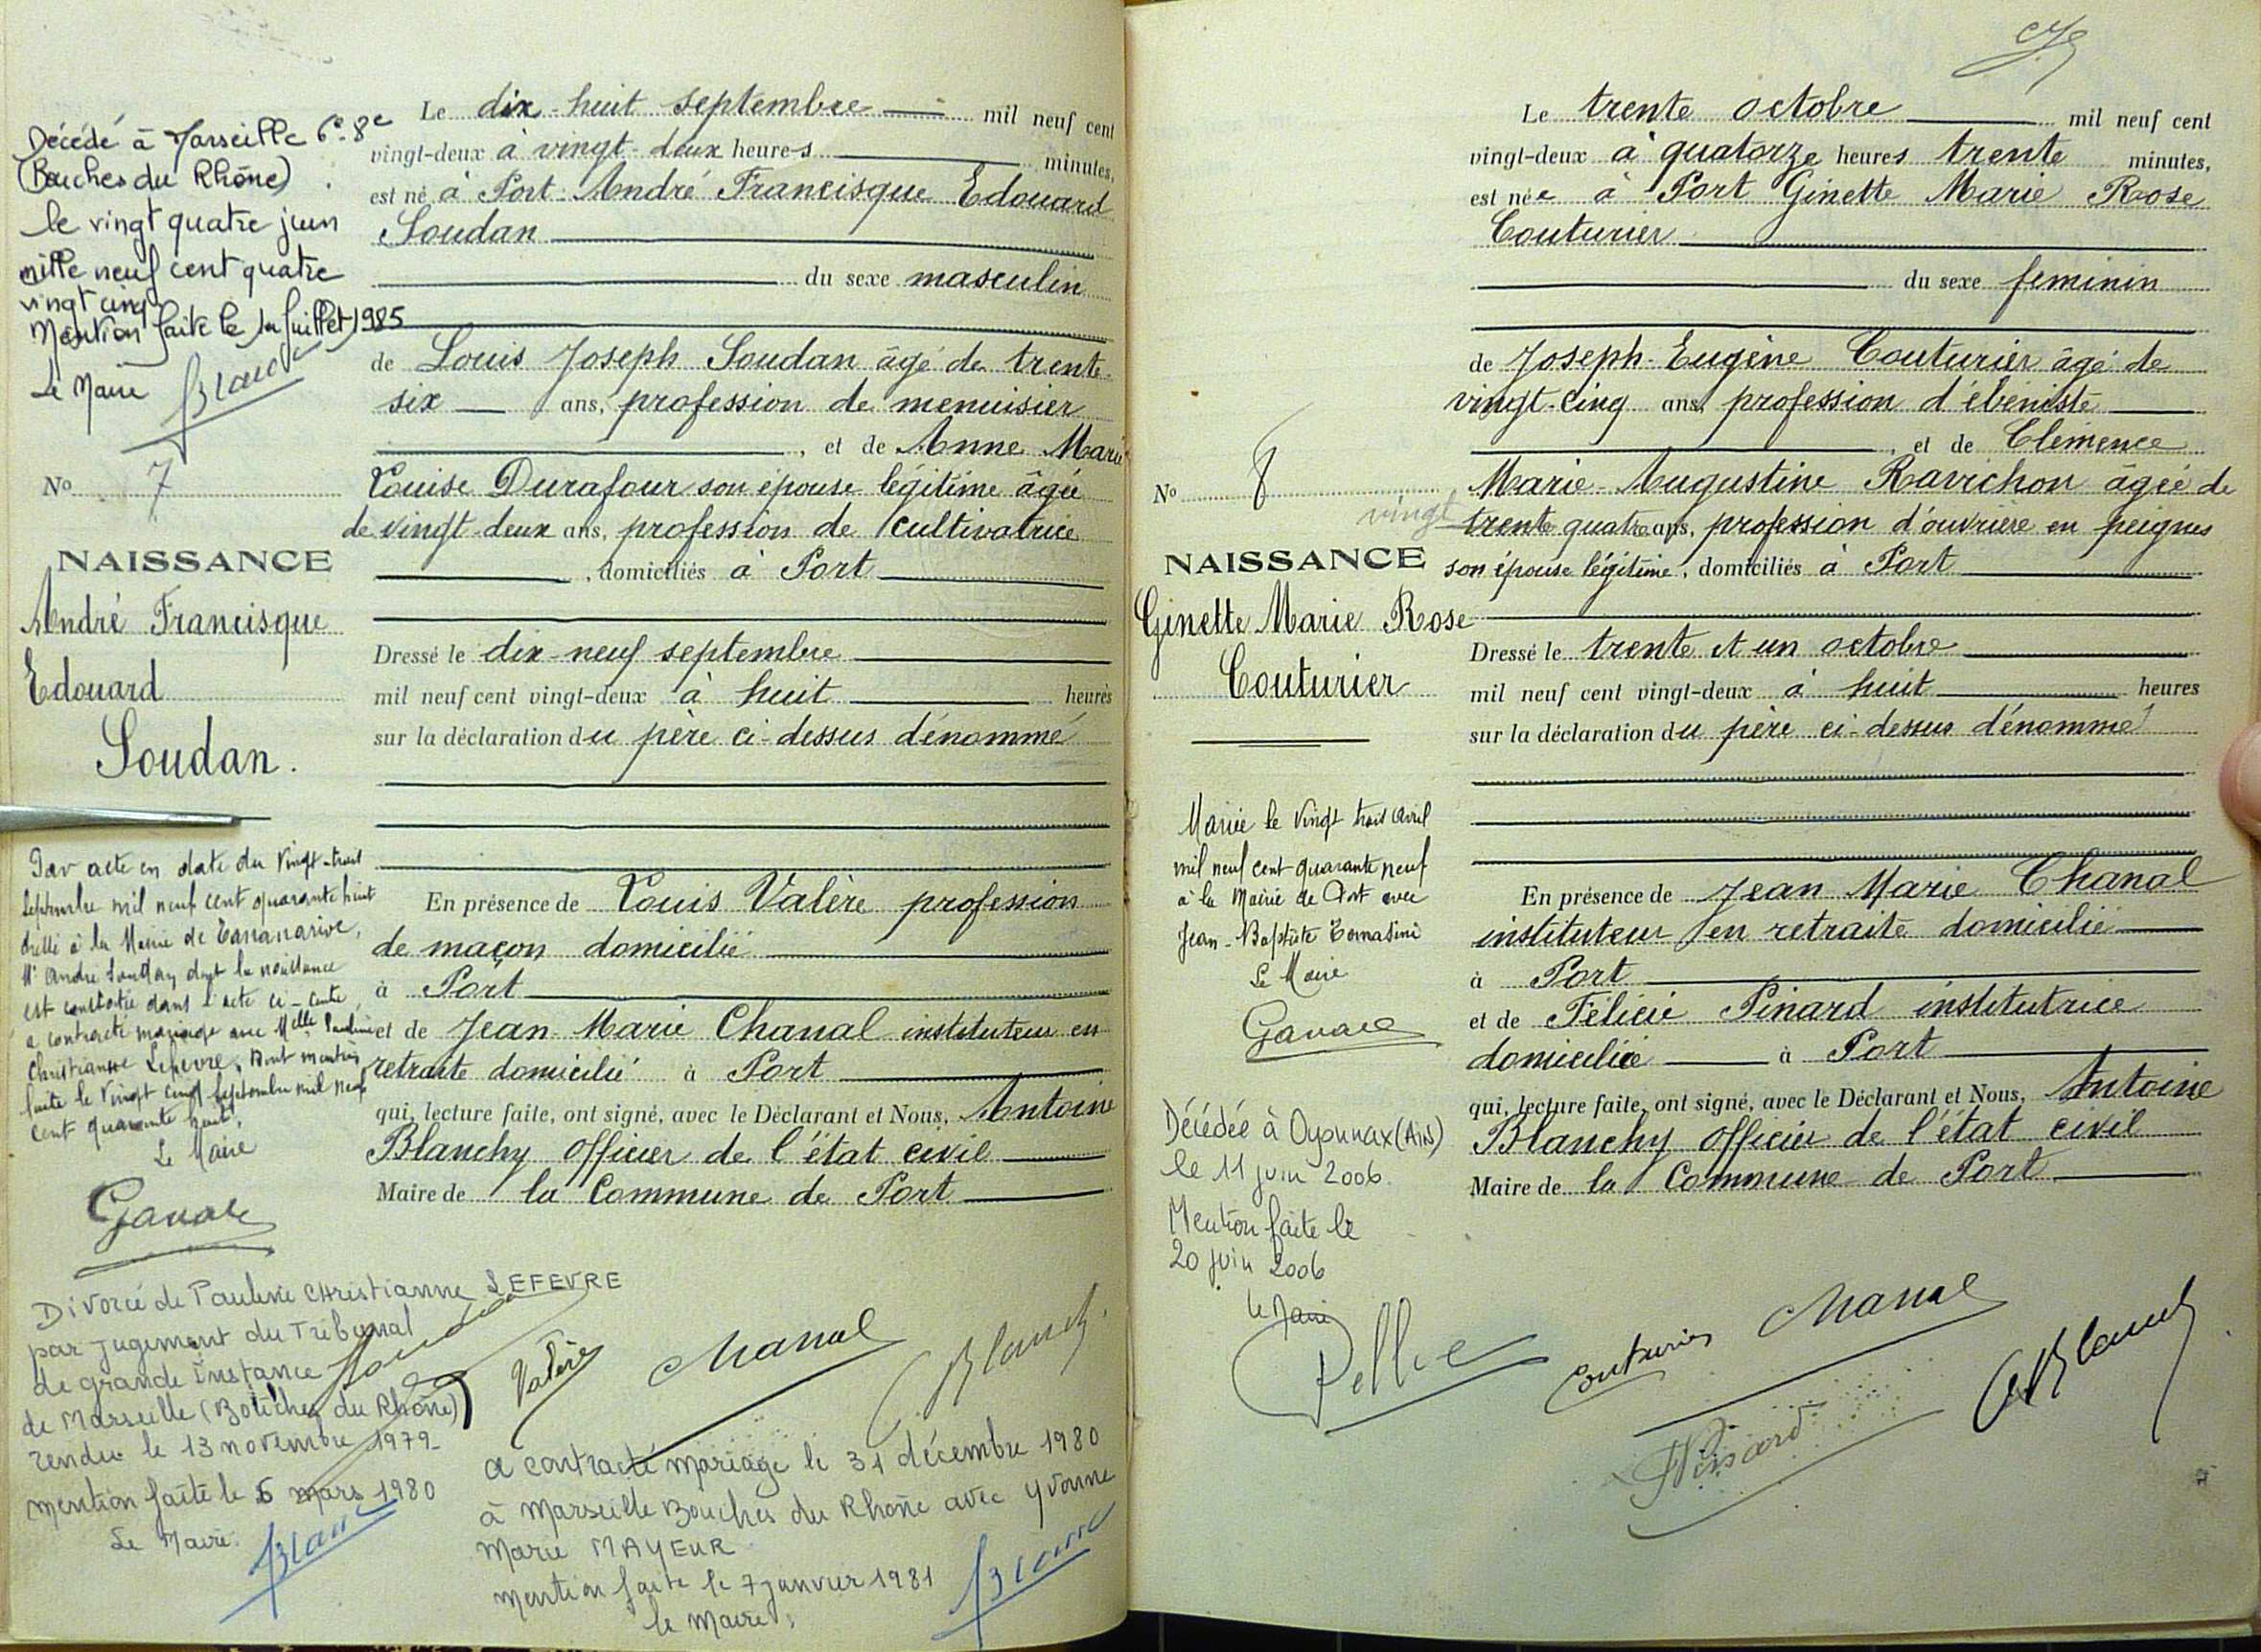 Décédé à Marseille 6e-8e
(Bouches du Rhône)
le vingt quatre juin
mille neuf cent quatre
vingt cinq
Mention faite le juillet 1985
Le Maire
No 7
NAISSANCE
André Francisque
Edouard
Soudan.
Par acte en date du vingt-trois
septembre mil neuf cent quarante huit
à la Mairie de Tananarive,
Mr André Soudan dont la naissance
est constatée dans l'acte ci-contre
a contracté mariage avec Melle Pauline
Christianne Lefevre. Dont mention
faite le vingt cinq septembre mil neuf
cent quarante huit,
Le Maire
Le dix-huit septembre mil neuf cent
vingt-deux à vingt-deux heures minutes,
est né à Port André Francisque Edouard
Soudan
du sexe masculin
de Louis Joseph Soudan âgé de trente
six ans, profession de menuisier
, et de Anne Marie
Louise Durafour son épouse légitime âgée
de vingt-deux ans, profession de cultivatrice
, domiciliés à Port
Dressé le dix-neuf septembre
mil neuf cent vingt-deux à huit heures
sur la déclaration du père ci-dessus dénommé
En présence de Louis Valère profession
de maçon domicilié
à Port
et de Jean-Marie Chanal instituteur en
retraite domicilié à Port
qui, lecture faite, ont signé, avec le Déclarant et Nous, Antoine
Blanchy officier de l'état civil
Maire de la Commune de Port
Divorcé de Pauline Christianne LEFEVRE
par jugement du Tribunal
de grande Instance
de Marseille (Bouches du Rhône)
rendu le 13 novembre 1979
mention faite le 6 mars 1980
Le Maire
Valère Chanal
a contracté mariage le 31 décembre 1980
à Marseille Bouches du Rhône avec Yvonne
Marie MAYEUR
mention faite le 7 janvier 1981
le maire :
No 8
NAISSANCE
Ginette Marie Rose
Couturier
Mariée le vingt trois avril
mil neuf cent quarante neuf
à la Mairie de Port avec
Jean-Baptiste Tomasini
Le Maire
Décédée à Oyonnax (Ain)
le 11 juin 2006.
Mention faite le
20 juin 2006
le Maire
Le trente octobre mil neuf cent
vingt-deux à quatorze heures trente minutes,
est née à Port Ginette Marie Rose
Couturier
du sexe feminin
de Joseph-Eugène Couturier âgé de
vingt-cinq ans, profession d'ébéniste
, et de Clémence
Marie-Augustine Ravichon âgée de
vingt trente quatre ans, profession d'ouvrière en peignes
son épouse légitime, domiciliés à Port
Dressé le trente et un octobre
mil neuf cent vingt-deux à huit heures
sur la déclaration du père ci-dessus dénommé
En présence de Jean Marie Chanal
instituteur en retraite domicilié
à Port
et de Félicie Pinard institutrice
domiciliée à Port
qui, lecture faite, ont signé, avec le Déclarant et Nous, Antoine
Blanchy officier de l'état civil
Maire de la Commune de Port
Couturier Chanal